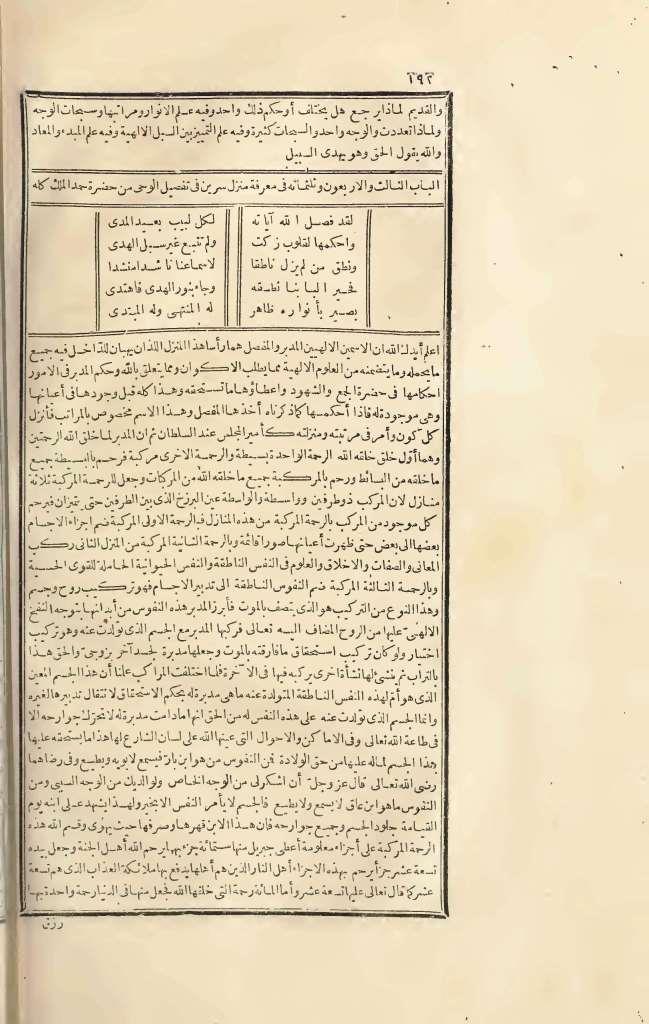 ١٩٢
والقديم لماذا يرجع هل يختلف أو حكم ذلك واحد وفيه علم الانوار ومراتبها وسبحات الوجه
ولماذا تعددت والوجه واحد والسبحات كثيرة وفيه علم التمييز بين السبل الالهية وفيه علم المبدء والمعاد
والله يقول الحق وهو يهدى السبيل
الباب الثالث والاربعون وثلثمائة فى معرفة منزل سرين فى تفصيل الوحى من حضرة حمد الملك كله
لقد فصل الله آياته لكل لبيب بعيد المدى
واحكمها لقلوب زكت ولم تتبع غير سبل الهدى
ونطق من لم يزل ناطقا لاسماعنا ناشدا منشدا
وجاء بنور الهدى فاهتدى
بصير بأنواره ظاهر له المنتهى وله المبتدى
اعلم أيدك الله ان الاسمين الالهيين المدبر والمفصل همارأساهذا المنزل اللذان يهبان للداخل فيه جميع
ما يحمله وما يتضمنه من العلوم الالهية مما يطلب الاكوان ومما يتعلق بالله وحكم المدبر فى الامور
احكامها فى حضرة الجمع والشهود واعطاؤها ما تستحقه وهذا كله قبل وجودها فى أعيانها
وهى موجودة له فاذا أحكمها كما ذكرناه أخذها المفصل وهذا الاسم مخصوص بالمراتب فأنزل
كل كون وأمر فى مرتبته ومنزلته كأمير المجلس عند السلطان ثم ان المدبر لما خلق الله الرحمتين
وهما أول خلق خلقه الله الرحمة الواحدة بسيطة والرحمة الاخرى مركبة فرحم بالبسيطة جميع
ما خلقه من البسائط ورحم بالمركبة جميع ما خلقه الله من المركبات وجعل للرحمة المركبة ثلاثة
منازل لان المركب ذو طرفين وواسطة والواسطة عين البرزخ الذى بين الطرفين حتى يتميزان فيرحم
كل موجود من المركب بالرحمة المركبة من هذه المنازل فبالرحمة الاولى المركبة ضم اجزاء الاجسام
بعضها الى بعض حتى ظهرت أعيانها صورا قائمة وبالرحمة الثانية المركبة من المنزل الثانى ركب
المعانى والصفات والاخلاق والعلوم فى النفس الناطقة والنفس الحيوانية الحاملة للقوى الحسية
وبالرحمة الثالثة المركبة ضم النفوس الناطقة الى تدبير الاجسام فهو تركيب روح وجسم
وهذا النوع من التركيب هو الذى يتصف بالموت فأبرز المدبر هذه النفوس من أبدانها بتوجه النفخ
الالهى عليها من الروح المضاف اليه تعالى فركبها المدبر مع الجسم الذى تولدت عنه وهو تركيب
اختيار ولو كان تركيب استحقاق ما فارقته بالموت وجعلها مدبرة لجسد آخر برزخى والحق هذا
بالتراب ثم ينشئ لها نشأة اخرى يركبها فيها فى الآخرة فلما اختلفت المراكب علمنا أن هذا الجسم المعين
الذى هو أم لهذه النفس الناطقة المتولدة عنه ما هى مدبرة له بحكم الاستحقاق لانتقال تدبيرها لغيره
وانما الجسم الذى تولدت عنه على هذه النفس له من الحق انها ما دامت مدبرة له لا تحرك جوارحه الا
فى طاعة الله تعالى وفى الاماكن والاحوال التى عينها الله على لسان الشارع لها هذا ما يستحقه عليها
هذا الجسم لما له عليها من حق الولادة فمن النفوس من هو ابن بار فيسمع لابويه ويطيع وفى رضاهما
رضى الله تعالى قال عز وجل أن اشكر لى من الوجه الخاص ولوالديك من الوجه السببى ومن
النفوس ما هو ابن عاق لا يسمع ولا يطيع فالجسم لا يأمر النفس الا بخير ولهذا يشهد على ابنه يوم
القيامة جلود الجسم وجميع جوارحه فان هذا الابن قهرها وصرفها حيث يهوى وقسم الله هذه
الرحمة المركبة على أجزاء معلومة أعطى جبريل منها ستمائة جزء بها يرحم الله أهل الجنة وجعل بيده
تسعة عشر جزأ يرحم بهذه الاجزاء أهل النار الذين هم أهلها يدفع بها ملائكة العذاب الذى هم تسعة
عشر كما قال تعالى عليها تسعة عشر وأما المائة رحمة التى خلقها الله فجعل منها فى الدنيا رحمة واحدة بها
رزق